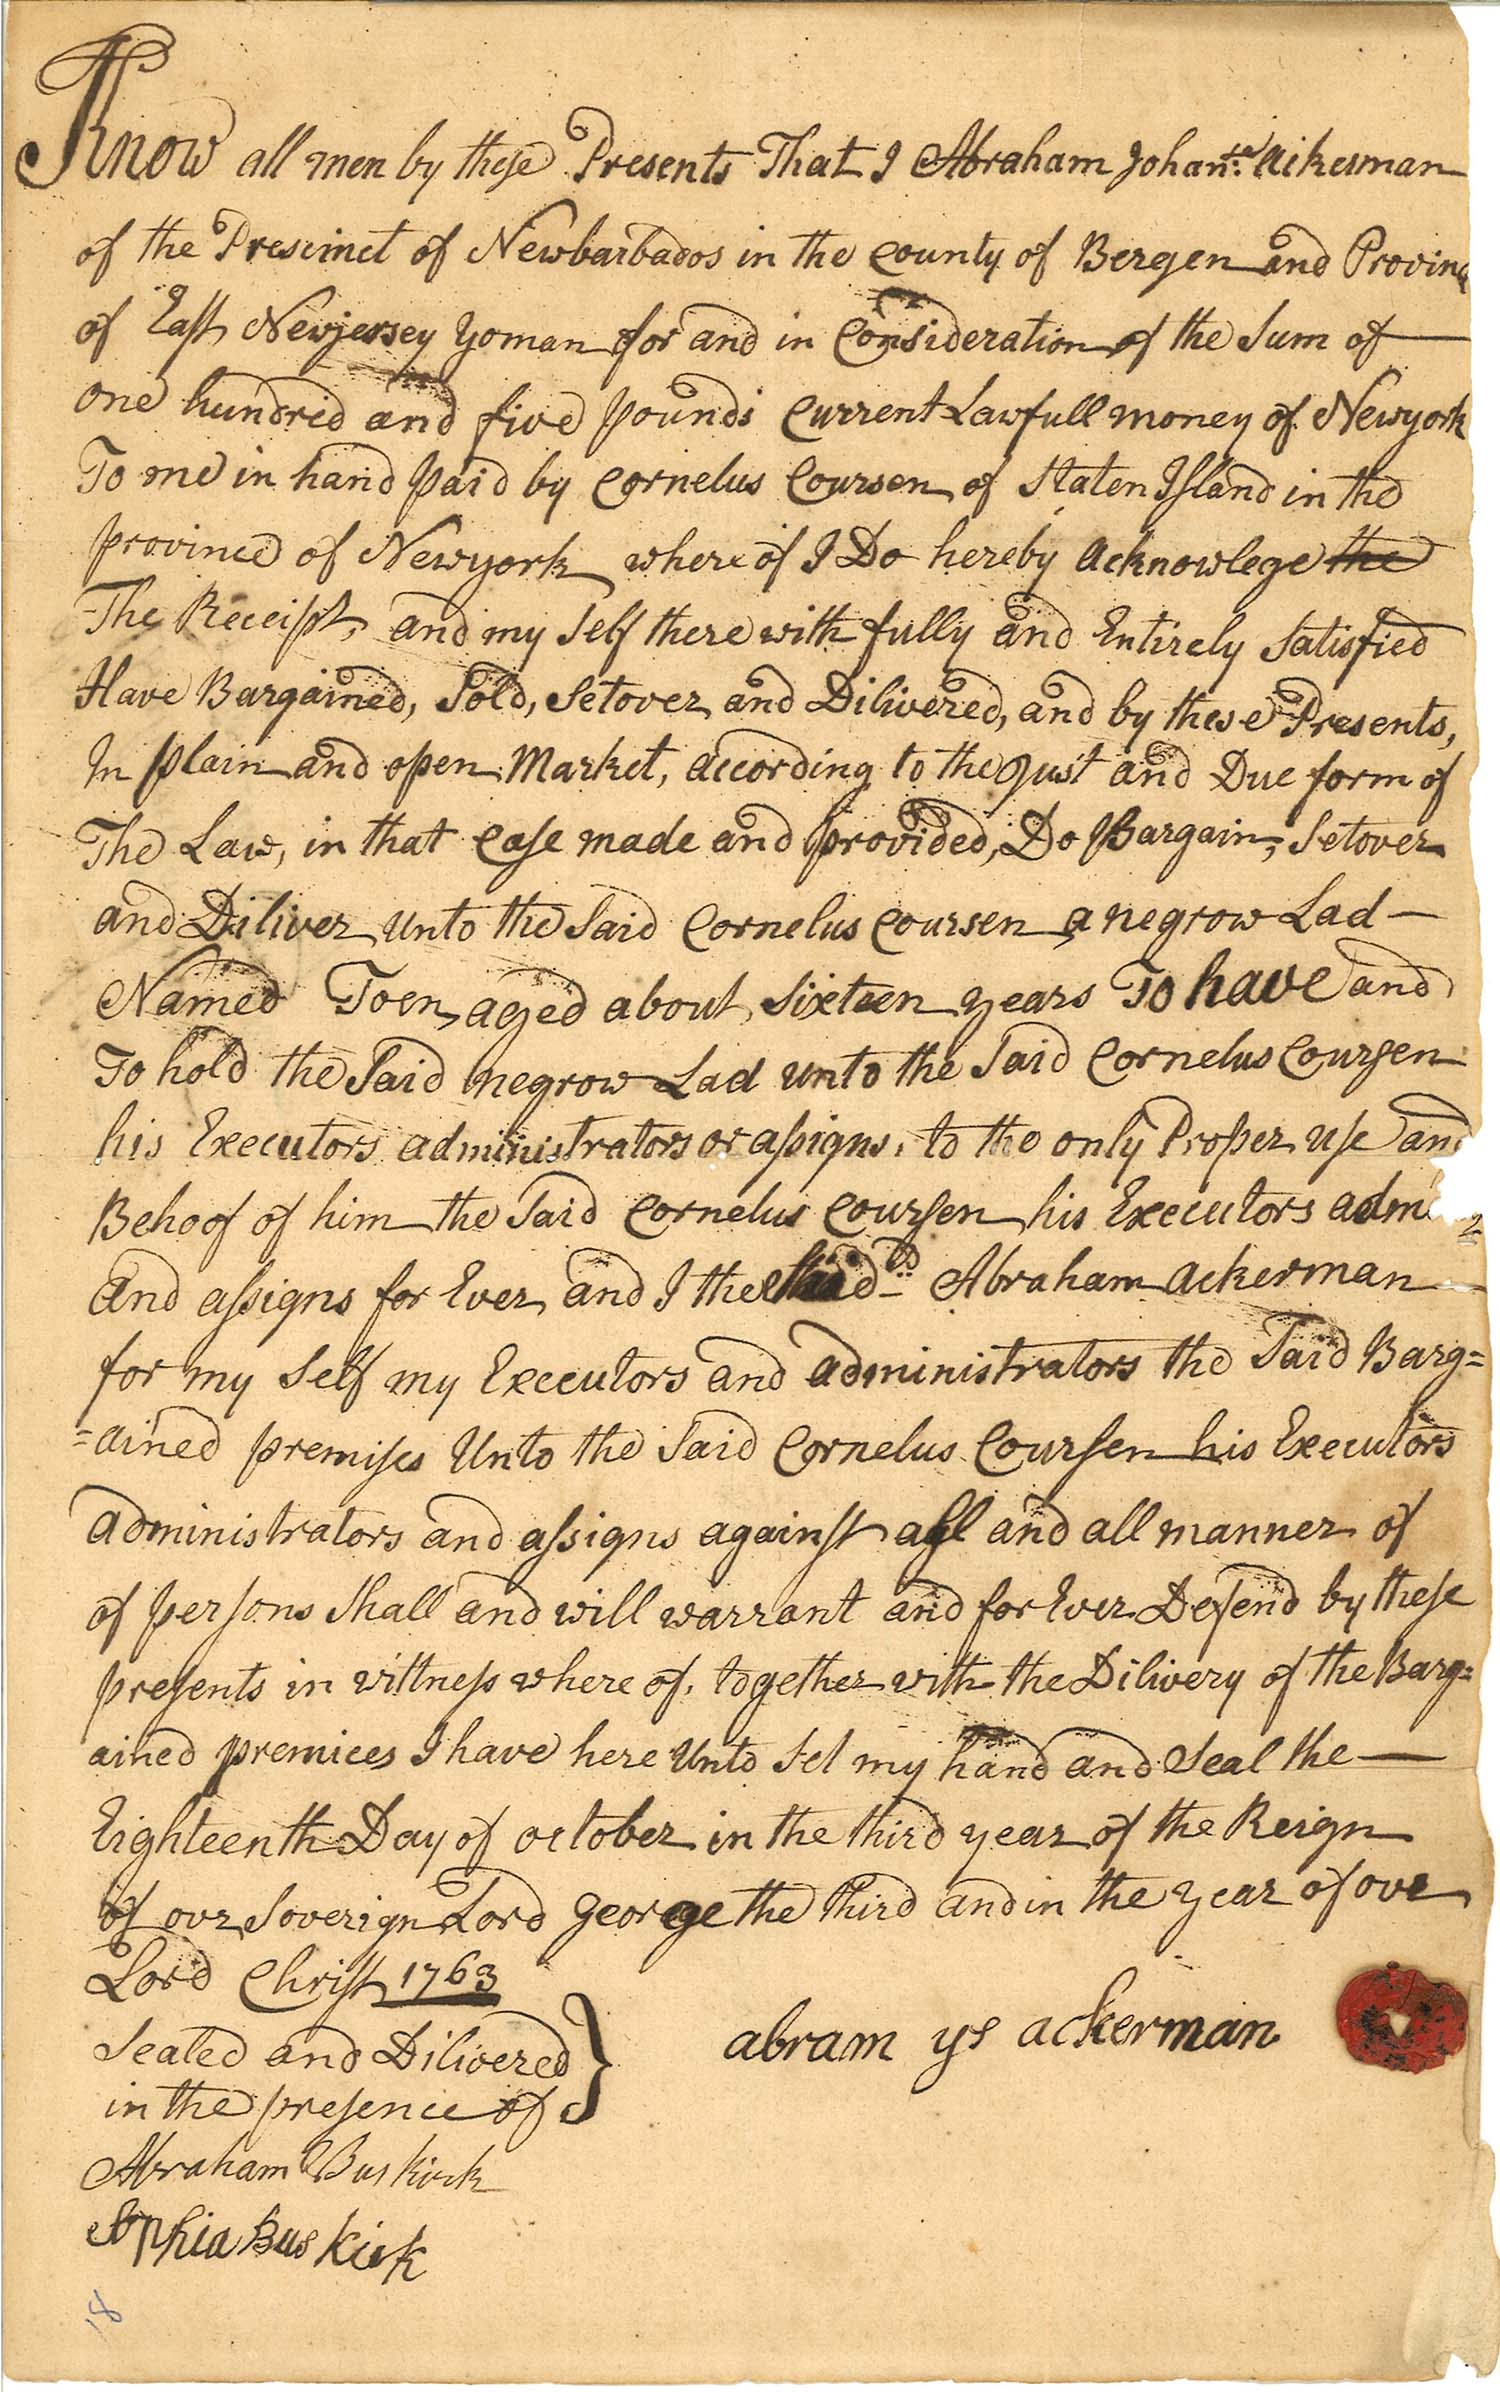 Know all men by these Presents That I Abraham Johan:se Ackerman
of the Prescinct of Newbarbados in the County of Bergen and Provinc
of East Newjersey Yoman for and in Consideration of the Sum of
one hundred and five pounds Current Lawfull money of Newyork
To me in hand paid by Cornelus Coursen of Staten Island in the
province of Newyork where of I Do hereby Acknowlege the
The Receipt, and my Self there with fully and Entirely Satisfied
Have Bargained, Sold, Setover and Dilivered, and by these Presents,
In plain and open Market, according to the Just and Due form of
The Law, in that Case made and provided, Do Bargain, Setover
and Diliver Unto the Said Cornelus Coursen a negrow Lad —
Named Toen, aged about Sixteen years To have and
To hold the Said negrow Lad unto the Said Cornelus Coursen
his Executors administrators or assigns, to the only Proper use and
Behoof of him the Said Cornelus Coursen his Executors adm
And assigns for Ever and I the Said Abraham Ackerman
for my Self my Executors and administrators the Said Barg=
=ained premises Unto the Said Cornelus Coursen his Executors
administrators and assigns against all and all manner of
of persons Shall and will warrant and for Ever Defend by these
presents in wittness where of, together with the Dilivery of the Barg=
ained premices I have here Unto Set my hand and Seal the —
Eighteenth Day of october in the third year of the Reign
of our Soverign Lord George the Third and in the year of our
Lord Christ 1763
Sealed and Dilivered
in the presence of
abram ys ackerman
Abraham Buskirk
Sophia Buskirk
18